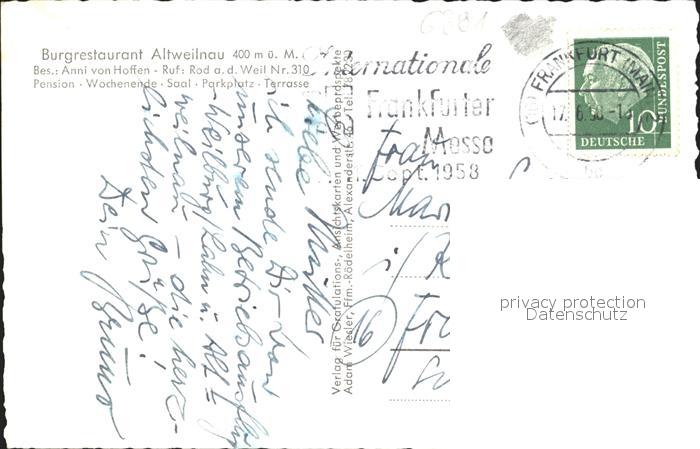 6881
Burgrestaurant Altweilnau 400 m ü. M.
Bes.: Anni von Hoffen - Ruf: Rod a. d. Weil Nr. 310
Pension · Wochenende · Saal · Parkplatz · Terrasse
Internationale
Frankfurter
Messe
Sept. 1958
FRANKFURT (MAIN
17.6.58-1
10
DEUTSCHE BUNDESPOST
Verlag für Gratulations-, Ansichtskarten und Werbeprospekte
Adam Wiesler, Ffm.-Rödelheim, Alexanderstr.
Liebe Mutter
ich sende Dir von
unserem Betriebsausflug
- Weilburg/Lahn u. Alt-
weilnau - die herz-
lichsten Grüße!
Dein
Frau
Mar
i/R
16 Fr
privacy protection
Datenschutz